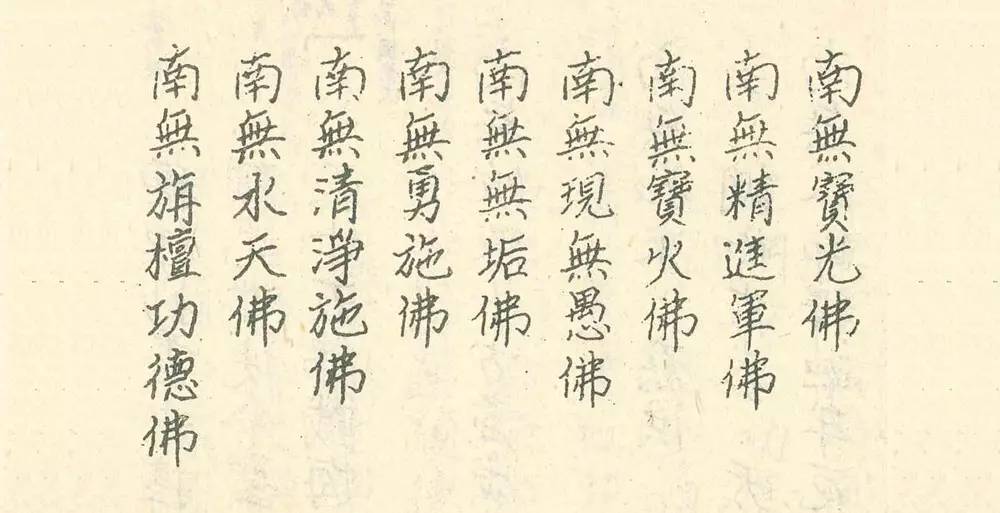 南無寶光佛
南無精進軍佛
南無寶火佛
南無現無愚佛
南無無垢佛
南無勇施佛
南無清淨施佛
南無水天佛
南無旃檀功德佛